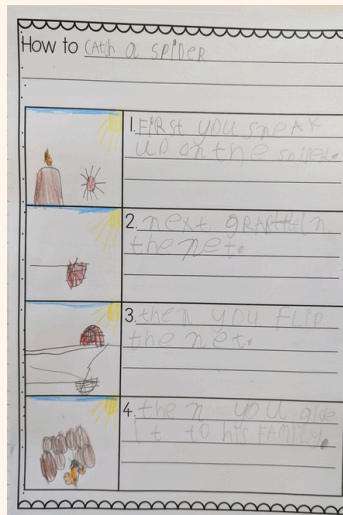 How to CATCh a SPIDER
1. FIRSt you sneak
up on the spider.
2. next grab it in
the net.
3. then you FLIP
the net.
4. then you give
it to his FAMILY.